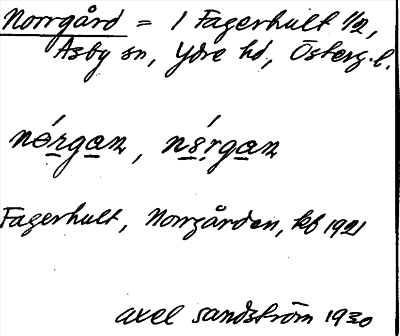 Norrgård = 1 Fagerhult 1/2,
Asby sn, Ydre hd, Österg. l.
nórgan, nśrgan
Fagerhult, Norrgården, kb 1921
Axel Sandström 1930